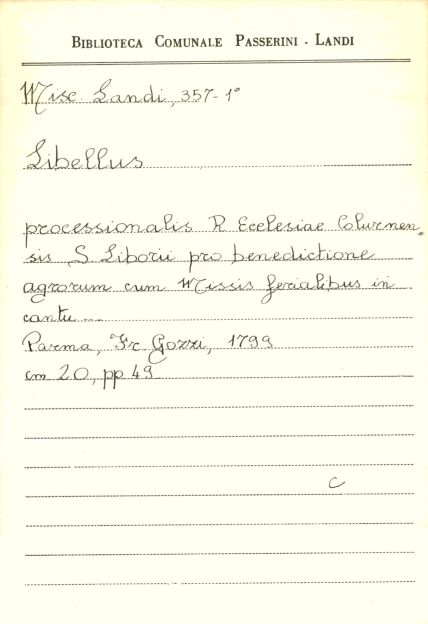 BIBLIOTECA COMUNALE PASSERINI - LANDI
Misc. Landi, 357-1°
Libellus
processionalis R Ecclesiae Colurnen,
sis S. Liborii pro benedictione
agrorum cum Missis ferialibus in
cantu...
Parma, Fr Gozzi, 1799
cm 20, pp 49
C